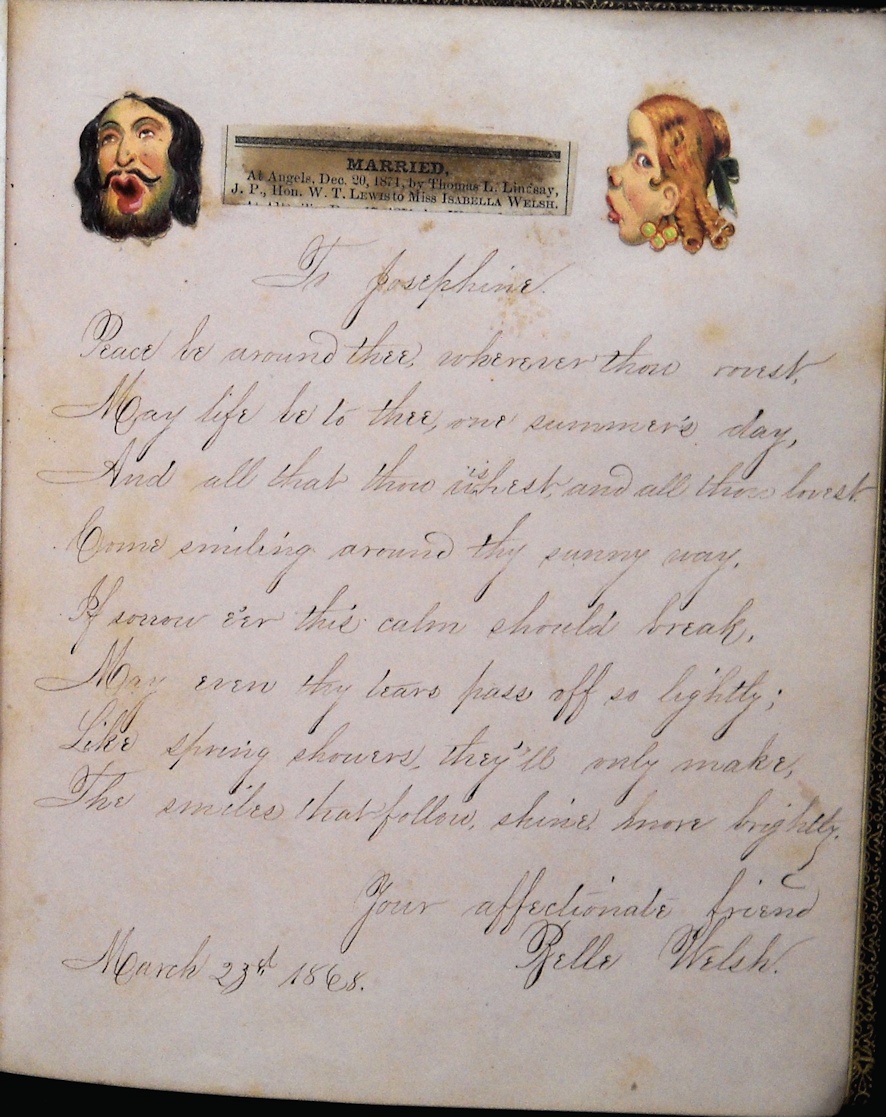 MARRIED.
At Angels, Dec. 20, 1871, by Thomas L. Lindsay,
J. P., Hon. W. T. LEWIS to Miss ISABELLA WELSH.
To Josephine.
Peace be around thee, wherever thou rovest,
May life be to thee, one summer's day,
And all that thou wishest, and all thou lovest
Come smiling around thy sunny way.
If sorrow e'er this calm should break,
May even thy tears pass off so lightly;
Like spring showers, they'll only make,
The smiles that follow, shine more brightly.
Your affectionate friend
Belle Welsh.
March 23d 1868.